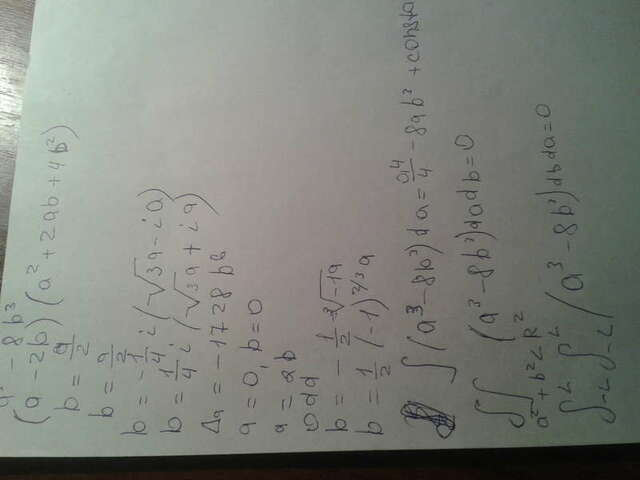 a³ - 8b³
(a - 2b)(a² + 2ab + 4b²)
b = a/2
b = a/2
b = -1/4 i(√3a - ia)
b = 1/4 i(√3a + ia)
Δa = -1728 b6
a = 0, b = 0
a = 2b
odd
b = -1/2 ∛-1a
b = 1/2 (-1)^2/3 a
∫(a³ - 8b³)da = a4/4 - 8ab³ + const
∫∫ (a³ - 8b³)dadb = 0
a² + b² < R²
∫-L^L ∫-L^L (a³ - 8b³)dbda = 0